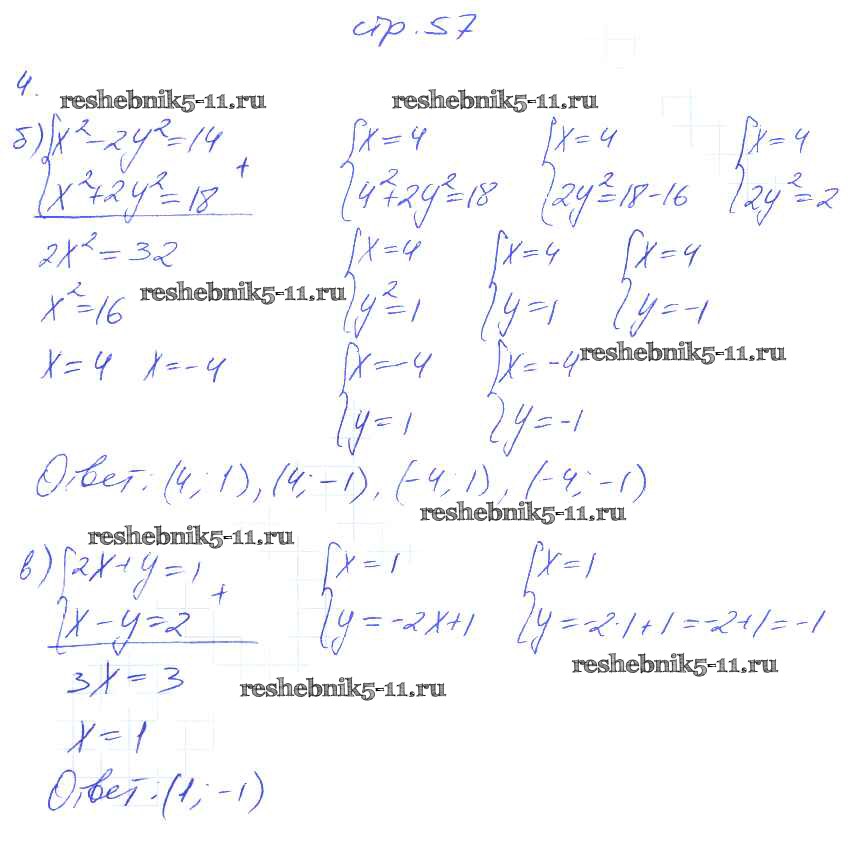 стр. 57
4.
reshebnik5-11.ru reshebnik5-11.ru
б) {x²-2y²=14 + {x=4 {x=4 {x=4
{x²+2y²=18 {4²+2y²=18 {2y²=18-16 {2y²=2
2x²=32 {x=4 {x=4 {x=4
x²=16 reshebnik5-11.ru {y²=1 {y=1 {y=-1
x=4 x=-4 {x=-4 {x=-4 reshebnik5-11.ru
{y=1 {y=-1
Ответ: (4; 1), (4; -1), (-4; 1), (-4; -1)
reshebnik5-11.ru reshebnik5-11.ru
в) {2x+y=1 + {x=1 {x=1
{x-y=2 {y=-2x+1 {y=-2·1+1=-2+1=-1
3x=3 reshebnik5-11.ru reshebnik5-11.ru
x=1
Ответ: (1; -1)